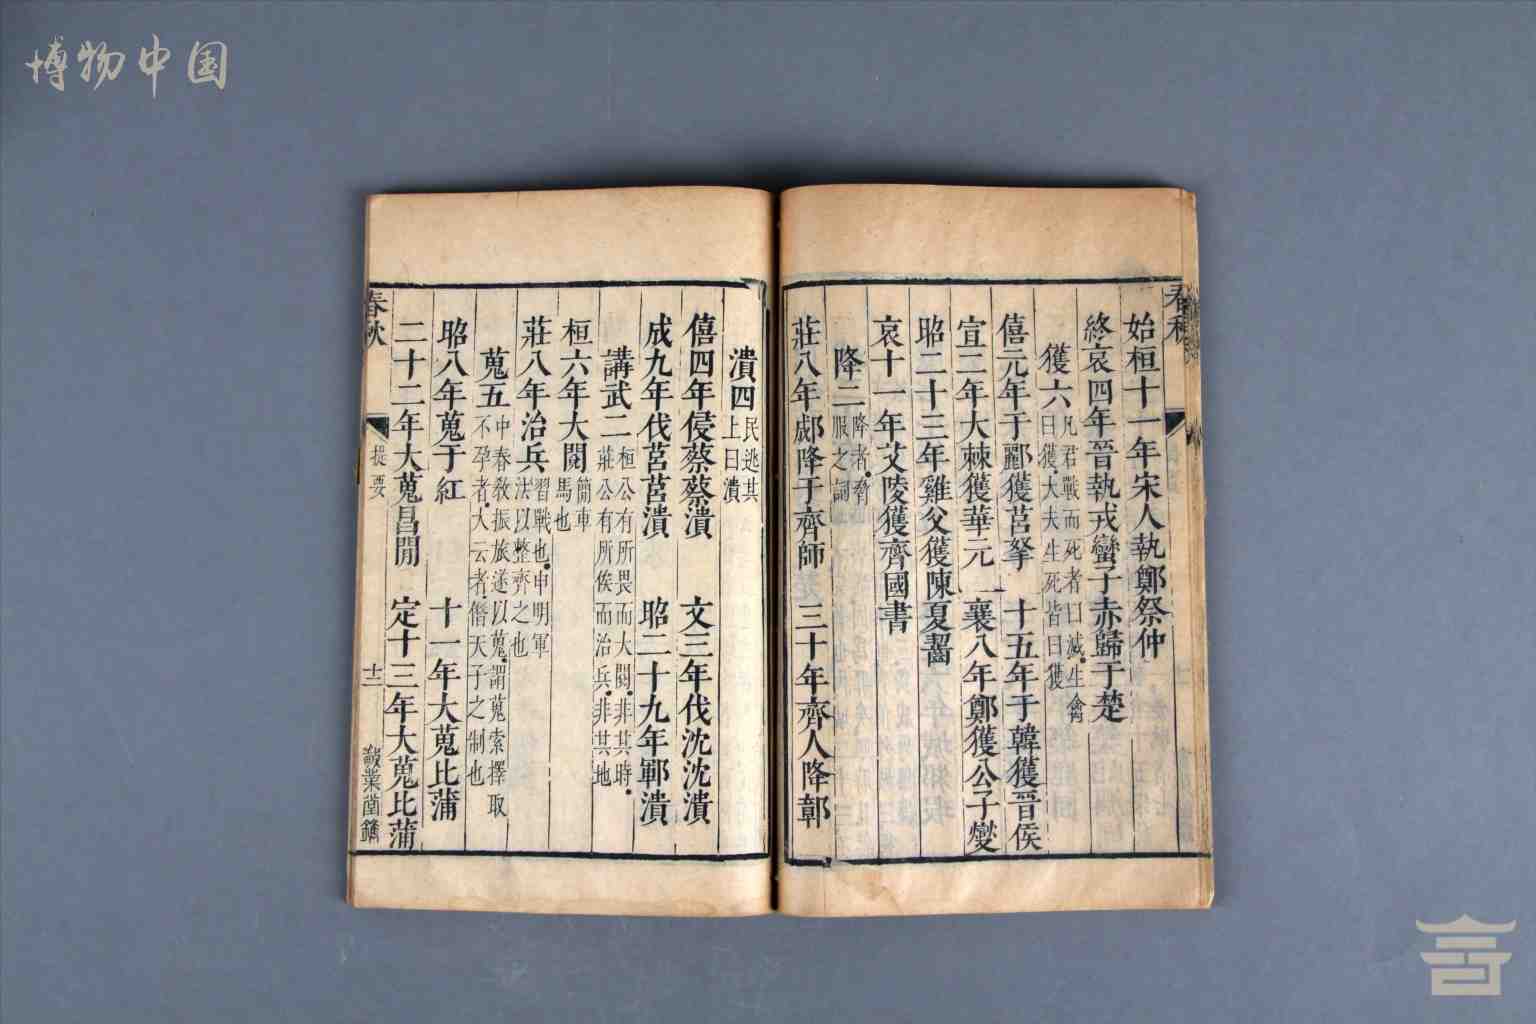 博物中国
春秋
始桓十一年宋人執鄭祭仲
終哀四年晉執戎蠻子赤歸于楚
獲六 凡君戰而死者曰滅生禽曰獲大夫生死皆曰獲
僖元年于酈獲莒挐 十五年于韓獲晉侯
宣二年大棘獲華元 襄八年鄭獲公子燮
昭二十三年雞父獲陳夏齧
哀十一年艾陵獲齊國書
降二 降者脅服之詞
莊八年郕降于齊師 三十年齊人降鄣
潰四 民逃其上曰潰
僖四年侵蔡蔡潰 文三年伐沈沈潰
成九年伐莒莒潰 昭二十九年鄆潰
講武二 桓公有所畏而大閱非其時莊公有所俟而治兵非其地
桓六年大閱 簡車馬也
莊八年治兵 習戰也申明軍法以整齊之也
蒐五 中春敎振旅遂以蒐謂蒐索擇取不孕者大云者僭天子之制也
昭八年蒐于紅 十一年大蒐比蒲
二十二年大蒐昌閒 定十三年大蒐比蒲
春秋 提要 十二